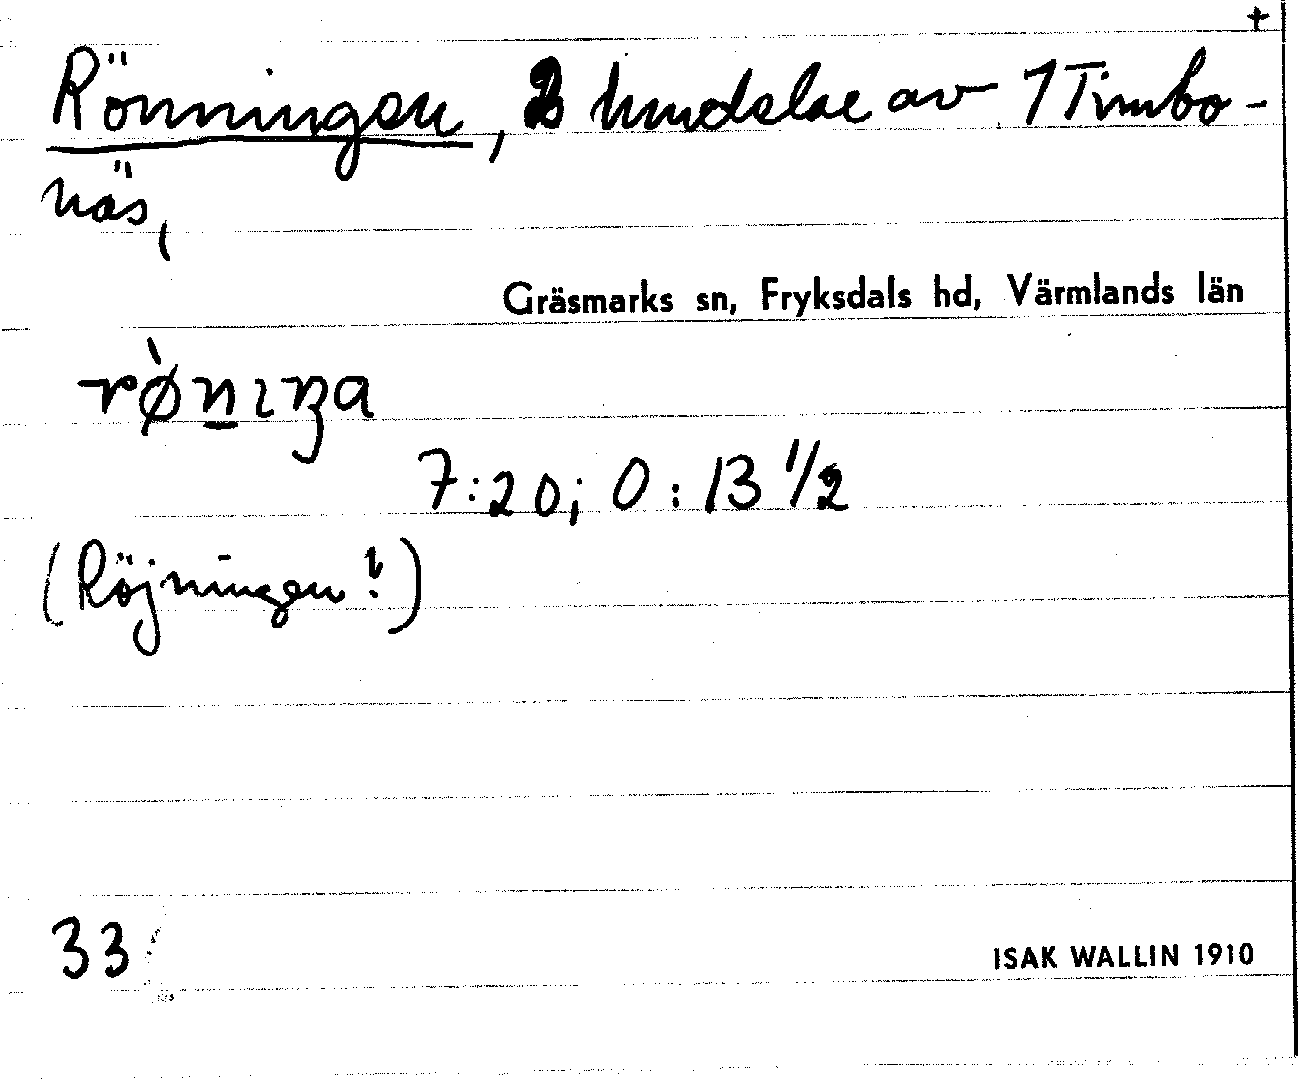 +
Rönningen, 2 hmdelar av 1 Timbo-
näs,
Gräsmarks sn, Fryksdals hd, Värmlands län
rø̀nıŋa
7:20; 0:13 1/2
(Röjningen!)
33
ISAK WALLIN 1910